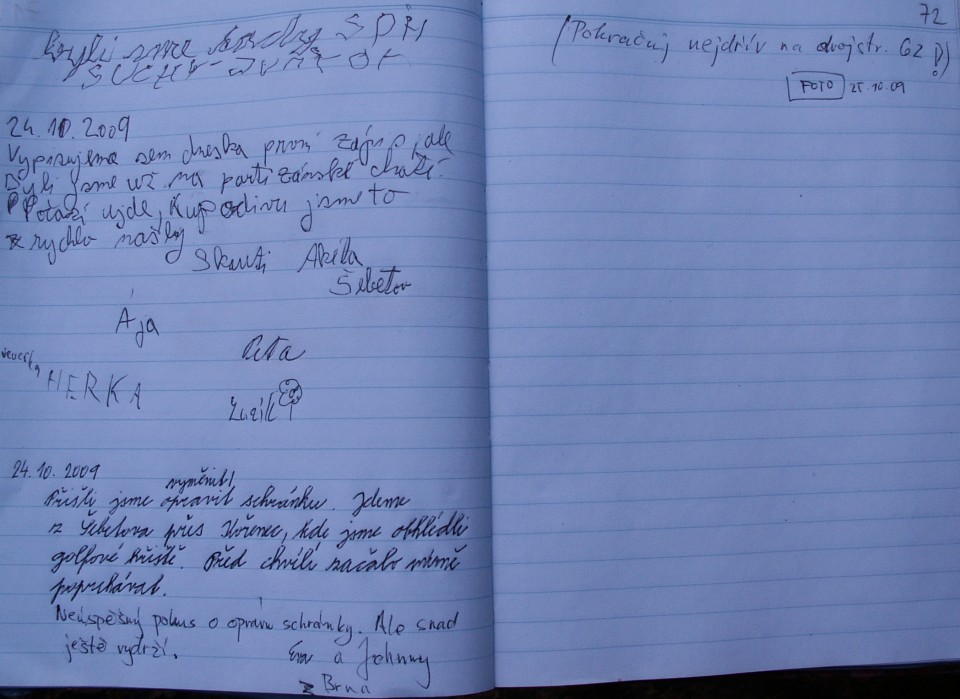 byli sme
24.10.2009
Vypisujeme sem dneska první zápis, ale
byli jsme už na partizánské chatě.
Počasí ujde, kupodivu jsme to
rychlo našly
Skauti Akéla
Šebetov
Ája
Péťa
veverka
HERKA
Luzik
24.10.2009
vyměnit!
Přišli jsme opravit schránku. Jdeme
z Šebetova přes Kořenec, kde jsme obhlédli
golfové hřiště. Před chvílí začalo mírně
poprchávat.
Neúspěšný pokus o opravu schránky. Ale snad
ještě vydrží.
Eva a Johnny
z Brna
72
(Pokračuj nejdřív na dvojstr. 62!)
FOTO 25.10.09